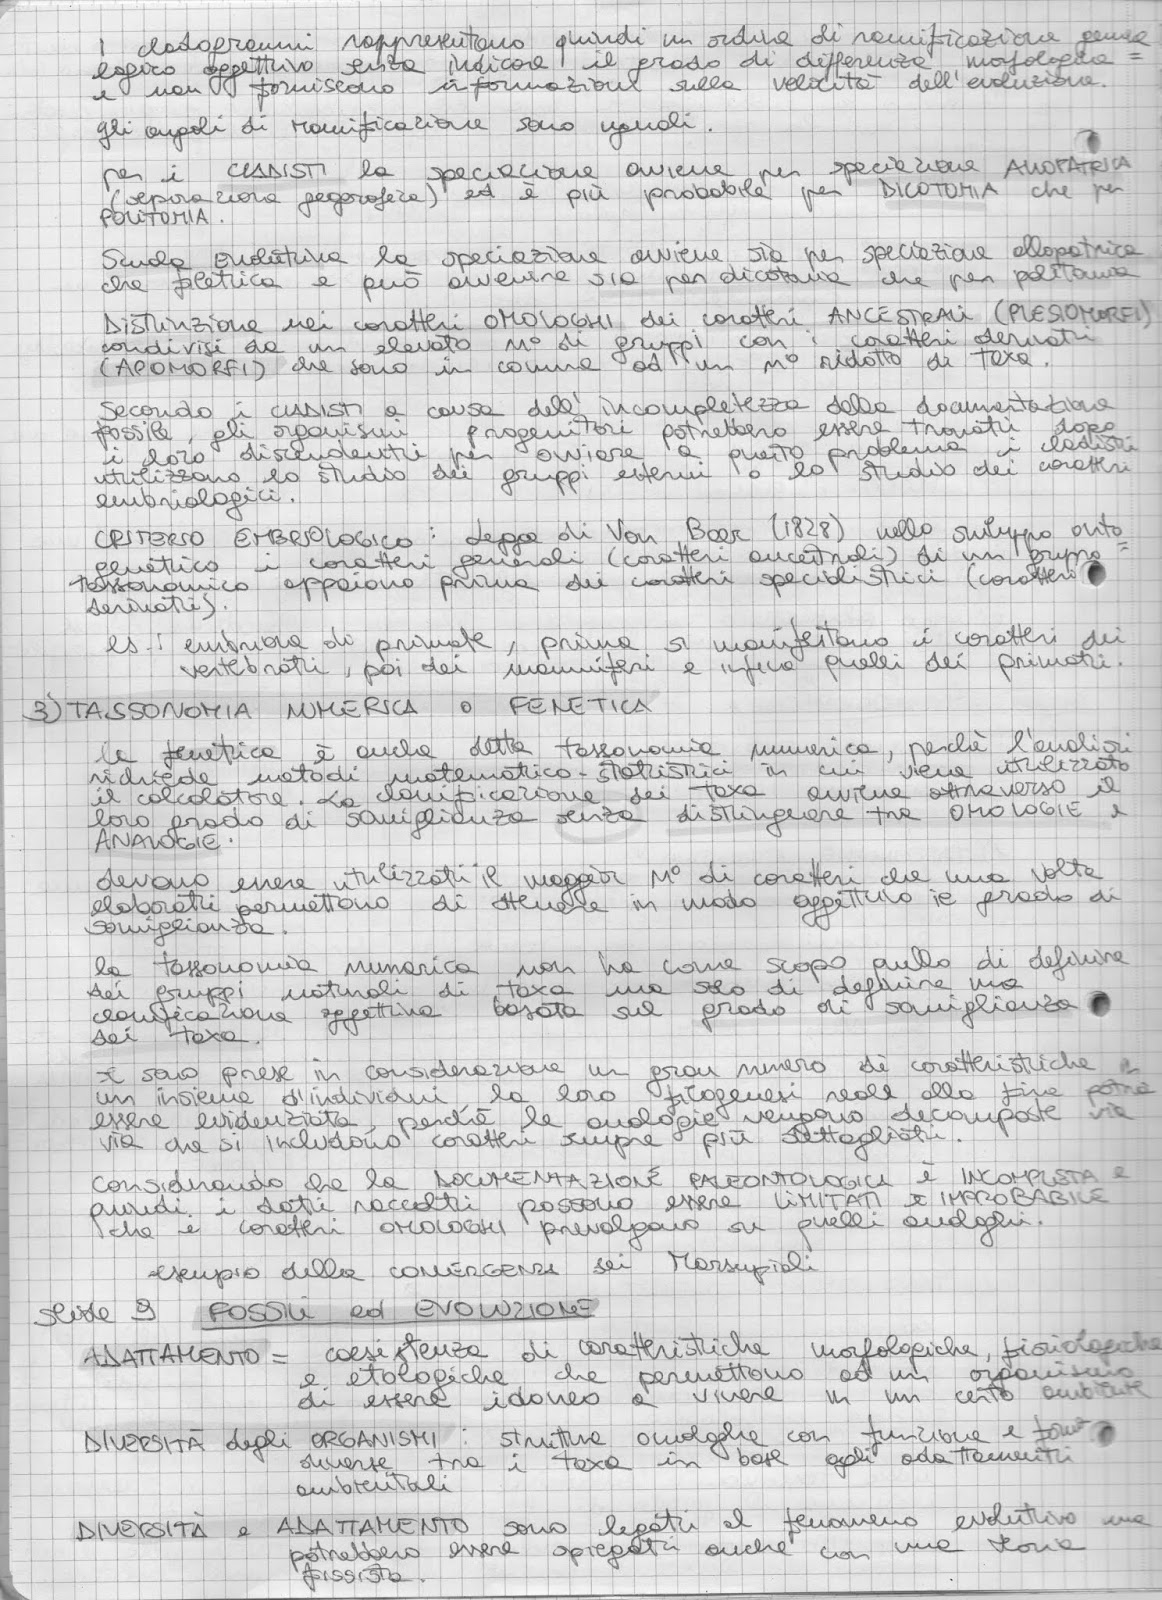 I cladogrammi rappresentano quindi un ordine di ramificazione genea
logico oggettivo senza indicare il grado di differenza morfologica =
e non forniscono informazioni sulla velocità dell'evoluzione.
gli angoli di ramificazione sono uguali.
per i CLADISTI la speciazione avviene per speciazione ALLOPATRICA
(separazione geografica) ed è più probabile per DICOTOMIA che per
POLITOMIA.
Scuola evolutiva la speciazione avviene sia per speciazione allopatrica
che filetica e può avvenire sia per dicotomia che per politomia
Distinzione nei caratteri OMOLOGHI dei caratteri ANCESTRALI (PLESIOMORFI)
condivisi da un elevato n° di gruppi con i caratteri derivati
(APOMORFI) che sono in comune ad un n° ridotto di taxa.
Secondo i CLADISTI a causa dell'incompletezza della documentazione
fossile, gli organismi progenitori potrebbero essere trovati dopo
i loro discendenti per ovviare a questo problema i cladisti
utilizzano lo studio dei gruppi esterni o lo studio dei caratteri
embriologici.
CRITERIO EMBRIOLOGICO: legge di Von Baer (1828) nello sviluppo onto
genetico i caratteri generali (caratteri ancestrali) di un gruppo =
tassonomico appaiono prima dei caratteri specialistici (caratteri
derivati).
es.: embrione di primate, prima si manifestano i caratteri dei
vertebrati, poi dei mammiferi e infine quelli dei primati.
3) TASSONOMIA NUMERICA o FENETICA
la fenetica è anche detta tassonomia numerica, perchè l'analisi
richiede metodi matematico-statistici in cui viene utilizzato
il calcolatore. La classificazione dei taxa avviene attraverso il
loro grado di somiglianza senza distinguere tra OMOLOGIE e
ANALOGIE.
devono essere utilizzati il maggior n° di caratteri che una volta
elaborati permettono di ottenere in modo oggettivo il grado di
somiglianza.
la tassonomia numerica non ha come scopo quello di definire
dei gruppi naturali di taxa ma solo di definire una
classificazione oggettiva basata sul grado di somiglianza
dei taxa.
se sono prese in considerazione un gran numero di caratteristiche in
un insieme d'individui la loro filogenesi reale alla fine potrà
essere evidenziata, perchè le analogie vengono decomposte via
via che si includono caratteri sempre più dettagliati.
Considerando che la DOCUMENTAZIONE PALEONTOLOGICA è INCOMPLETA e
quindi i dati raccolti possono essere LIMITATI è IMPROBABILE
che i caratteri OMOLOGHI prevalgano su quelli analoghi.
esempio della CONVERGENZA dei Marsupiali
slide 9 FOSSILI ed EVOLUZIONE
ADATTAMENTO = coesistenza di caratteristiche morfologiche, fisiologiche
e etologiche che permettono ad un organismo
di essere idoneo a vivere in un certo ambiente
DIVERSITÀ degli ORGANISMI: strutture analoghe con funzione e forma
diverse tra i taxa in base agli adattamenti
ambientali
DIVERSITÀ e ADATTAMENTO sono legati al fenomeno evolutivo ma
potrebbero essere spiegati anche con una teoria
fissista.